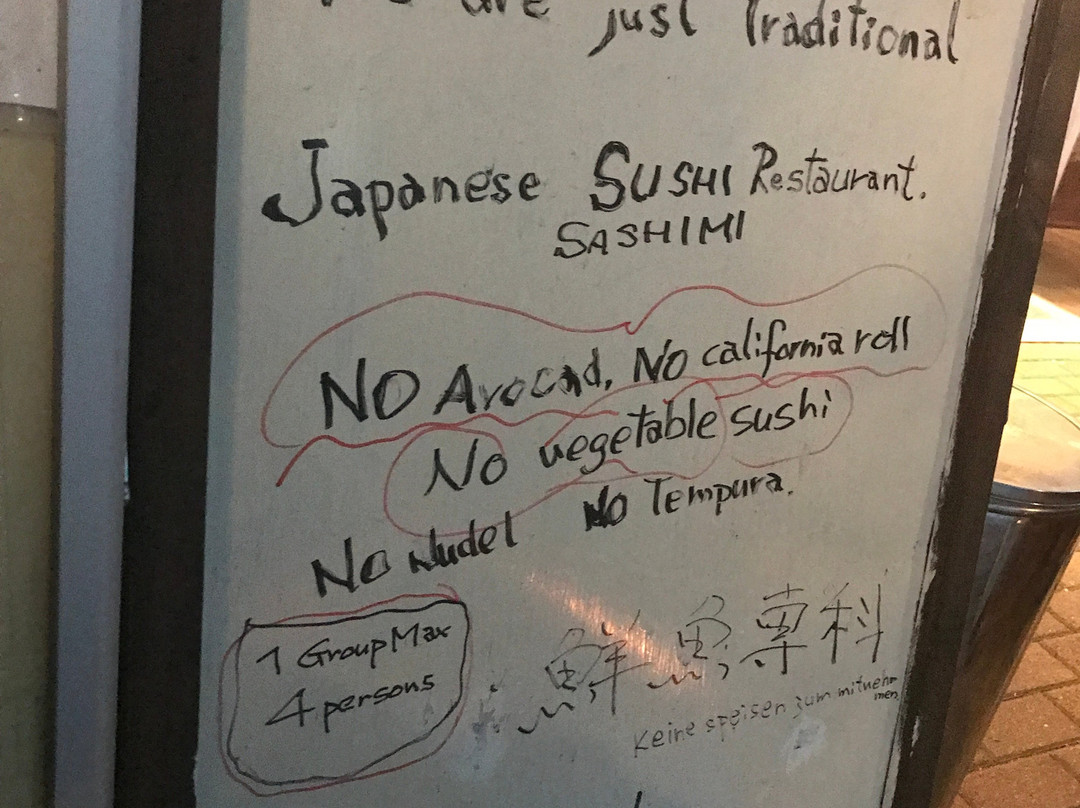 are just Traditional
Japanese SUSHI Restaurant.
SASHIMI
NO Avocad, NO california roll
No vegetable sushi
No Nudel NO Tempura.
1 Group Max
4 persons
鮮魚專科
Keine speisen zum mitneh
men